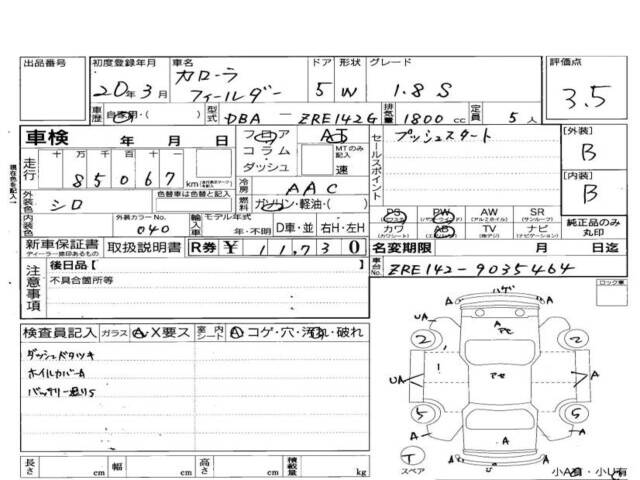 出品番号
初度登録年月 車名 ドア 形状 グレード 評価点
20年3月 カローラ フィールダー 5 W 1.8 S 3.5
車歴 自家用・( ) 型式 DBA ー ZRE142G 排気量 1800cc 定員 5人
車検 年 月 日 フロア AT セールスポイント プッシュスタート [外装] B
走行 十 万 千 百 十 一 コラム MTのみ記入
85067 km ダッシュ 速 [内装] B
現在色を記入
外装色 シロ 色替車は色替と記入 冷房 AAC
燃料 ガソリン・軽油・( ) PS PW AW SR 純正品のみ丸印
(パワステ) (パワーウィンドウ) (アルミホイル) (サンルーフ)
内装色 外装カラーNo. 040 輸入車 モデル年式 年・不明 D車・並 右H・左H カワ AB TV ナビ
(カワシート) (エアバッグ) (地デジ) (ナビゲーション)
新車保証書 取扱説明書 R券 ¥ 11,730 名変期限 月 日迄
ディーラー捺印あるもの
注意事項 後日品 [ 車台No. ZRE142-9035464
不具合箇所等 ロック車
検査員記入 ガラス A・X要ス 室内シート A コゲ・穴・汚れ・破れ
ダッシュベタツキ
ホイルカバーA
バッテリー
ハゲ
UA A
アセ
2 2
UA アセ A
5 5
A A
A
T A A
スペア
長さ cm 幅 cm 高さ cm 積載量 kg 小A有・小U有